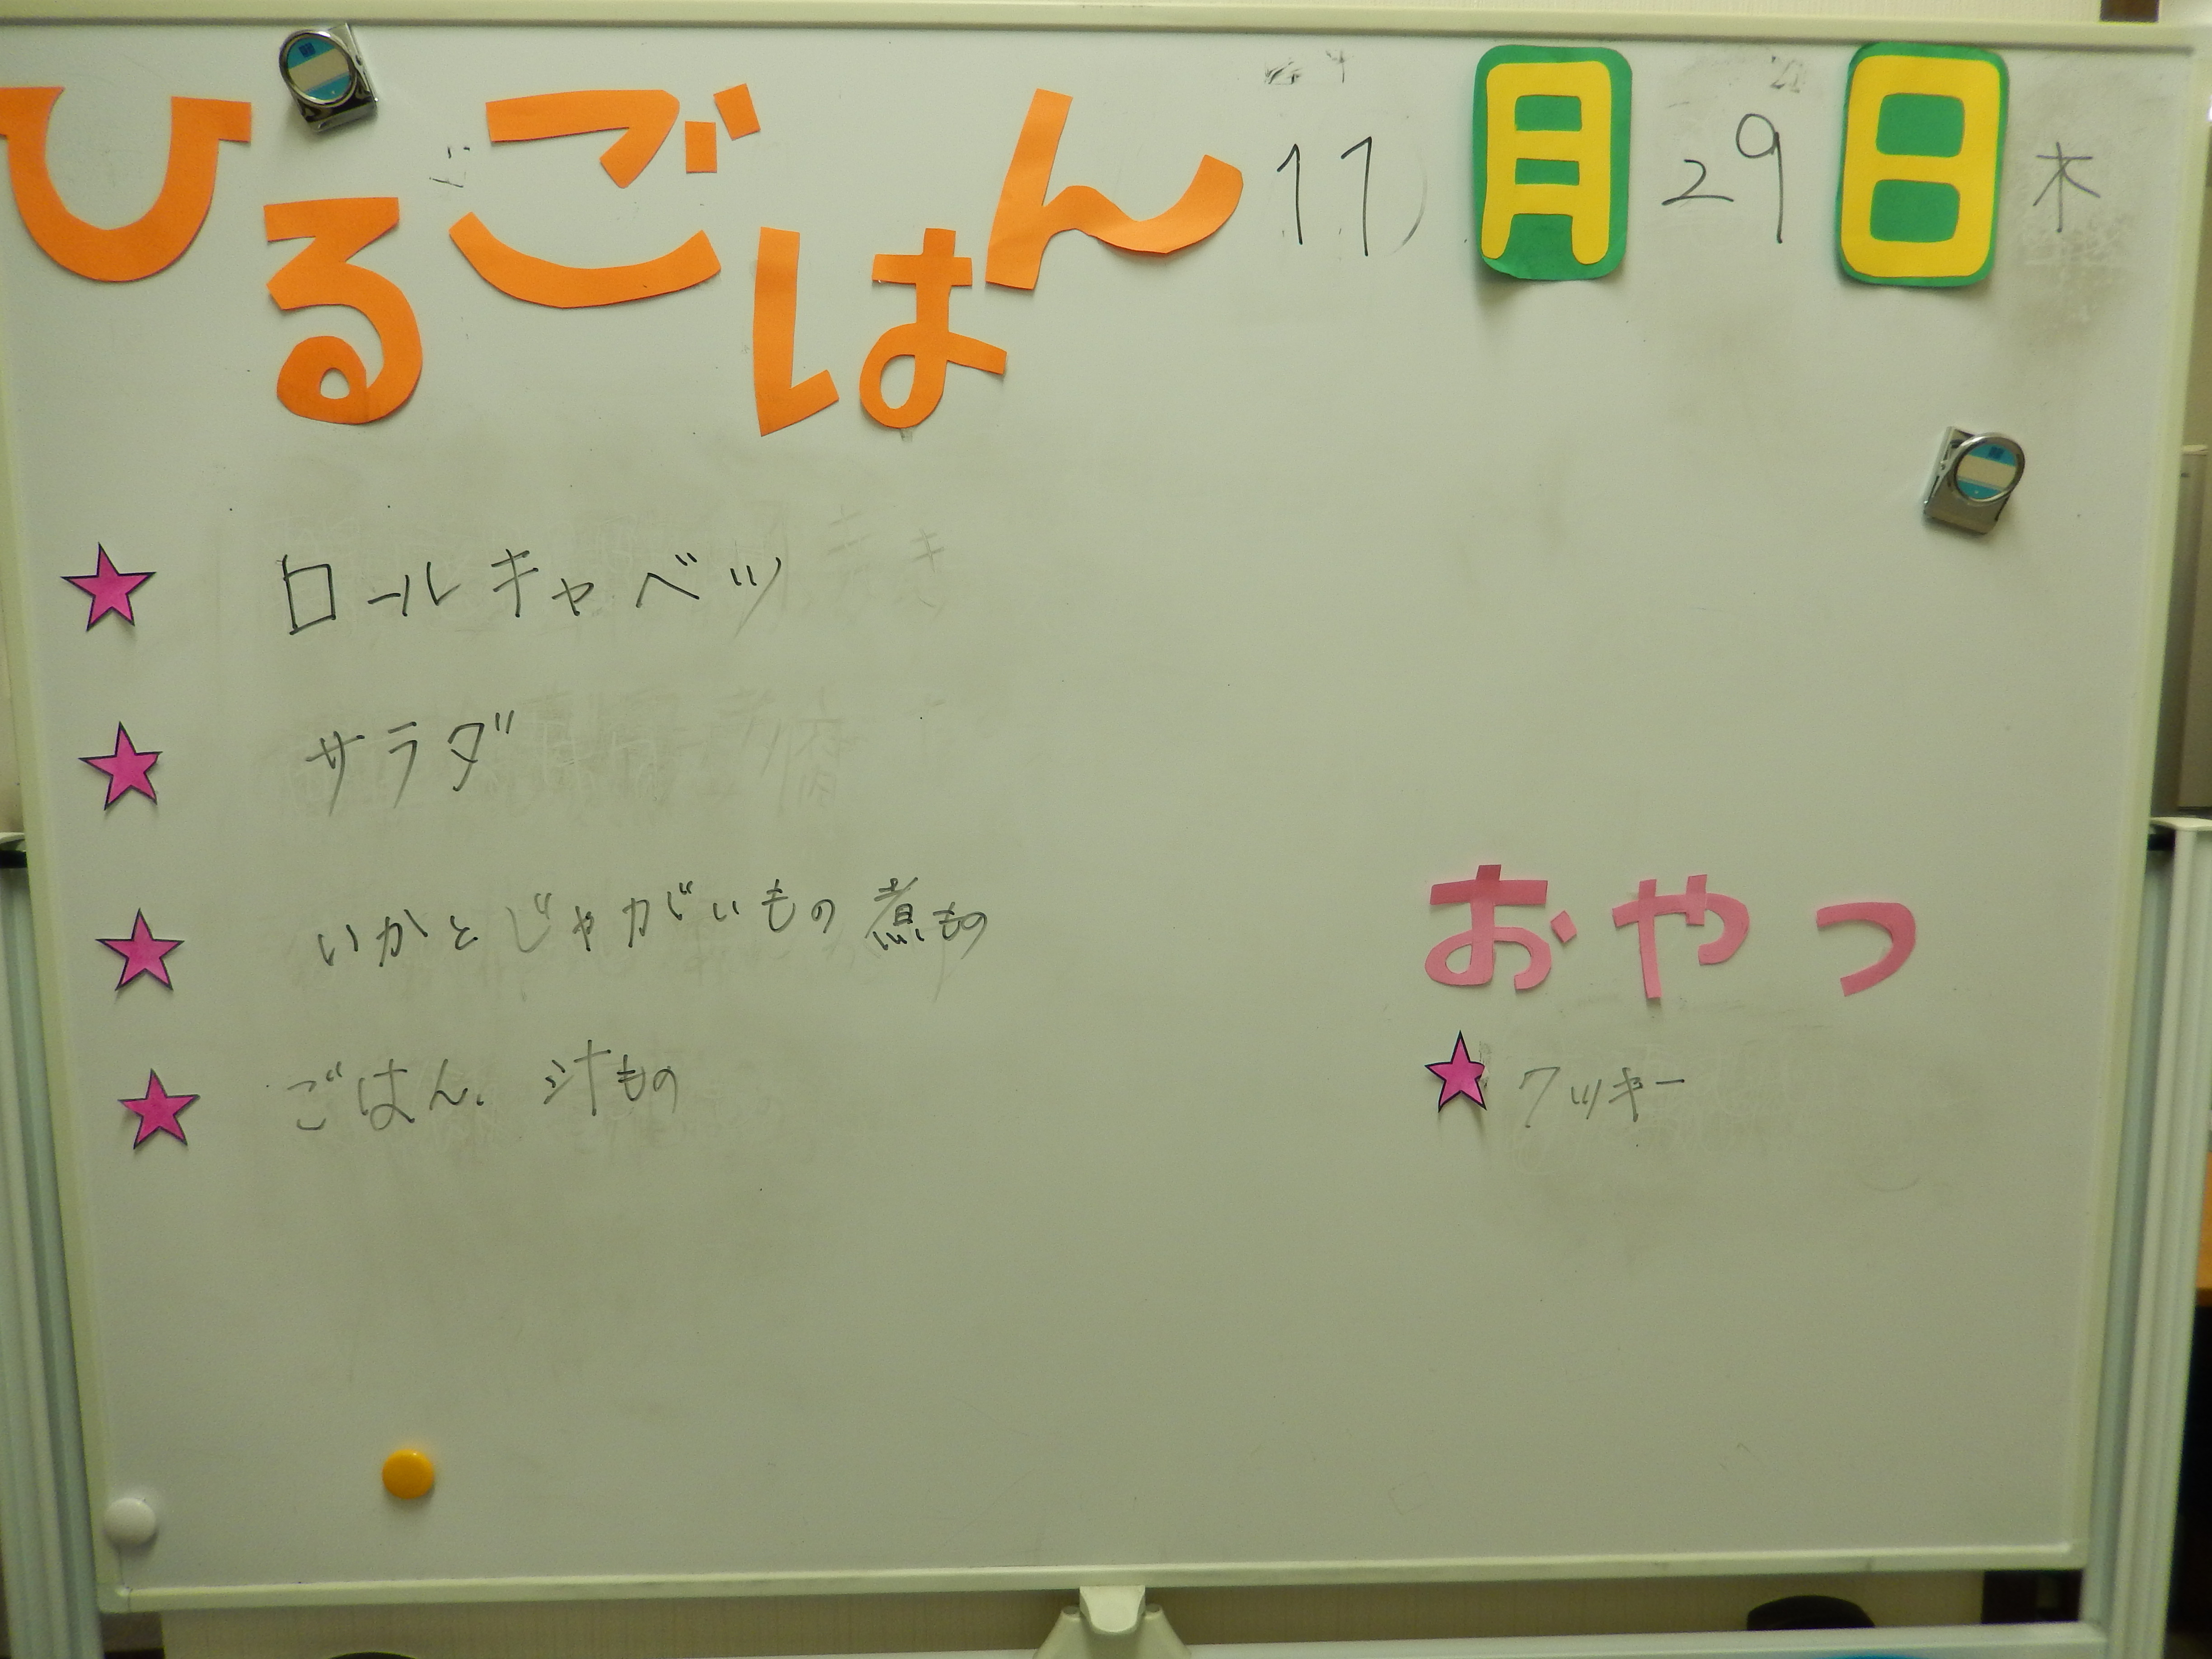 ひるごはん 11月29日 木
ロールキャベツ
サラダ
いかとじゃがいもの煮もの
ごはん、汁もの
おやつ
クッキー